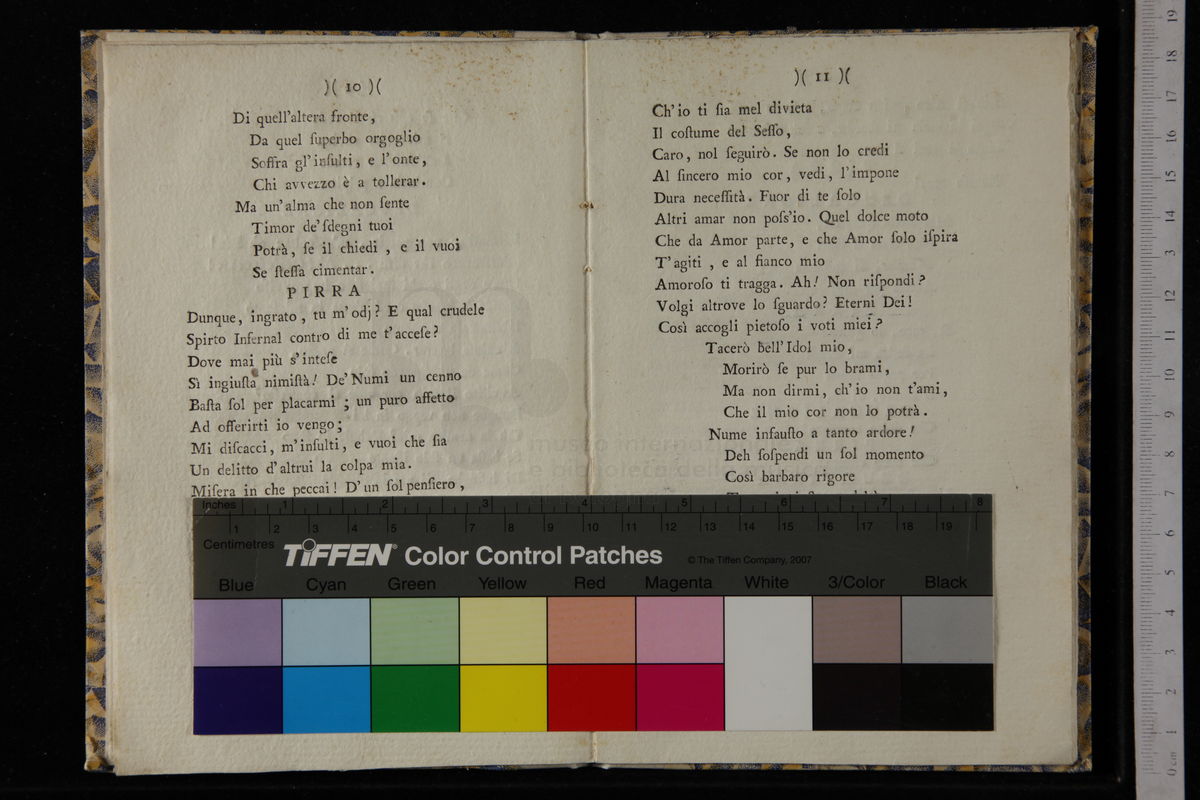 )( 10 )(
Di quell'altera fronte,
Da quel ſuperbo orgoglio
Soffra gl'inſulti, e l'onte,
Chi avvezzo è a tollerar.
Ma un'alma che non ſente
Timor de'ſdegni tuoi
Potrà, ſe il chiedi , e il vuoi
Se ſteſſa cimentar.
PIRRA
Dunque, ingrato, tu m'odj? E qual crudele
Spirto Infernal contro di me t'acceſe?
Dove mai più s'inteſe
Sì ingiuſta nimiſtà! De'Numi un cenno
Baſta ſol per placarmi ; un puro affetto
Ad offerirti io vengo;
Mi diſcacci, m'inſulti, e vuoi che ſia
Un delitto d'altrui la colpa mia.
Miſera in che peccai! D'un ſol penſiero,
)( 11 )(
Ch'io ti ſia mel divieta
Il coſtume del Seſſo,
Caro, nol ſeguirò. Se non lo credi
Al ſincero mio cor, vedi, l'impone
Dura neceſſità. Fuor di te ſolo
Altri amar non poſs'io. Quel dolce moto
Che da Amor parte, e che Amor ſolo iſpira
T'agiti , e al fianco mio
Amoroſo ti tragga. Ah! Non riſpondi?
Volgi altrove lo ſguardo? Eterni Dei!
Così accogli pietoſo i voti miei?
Tacerò bell'Idol mio,
Morirò ſe pur lo brami,
Ma non dirmi, ch'io non t'ami,
Che il mio cor non lo potrà.
Nume infauſto a tanto ardore!
Deh ſoſpendi un ſol momento
Così barbaro rigore
museo internazionale
e biblioteca della
Inches 1 2 3 4 5 6 7 8
1 2 3 4 5 6 7 8 9 10 11 12 13 14 15 16 17 18 19
Centimetres
TIFFEN® Color Control Patches
© The Tiffen Company, 2007
Blue Cyan Green Yellow Red Magenta White 3/Color Black
0 cm 1 2 3 4 5 6 7 8 9 10 11 12 3 14 15 16 17 18 19